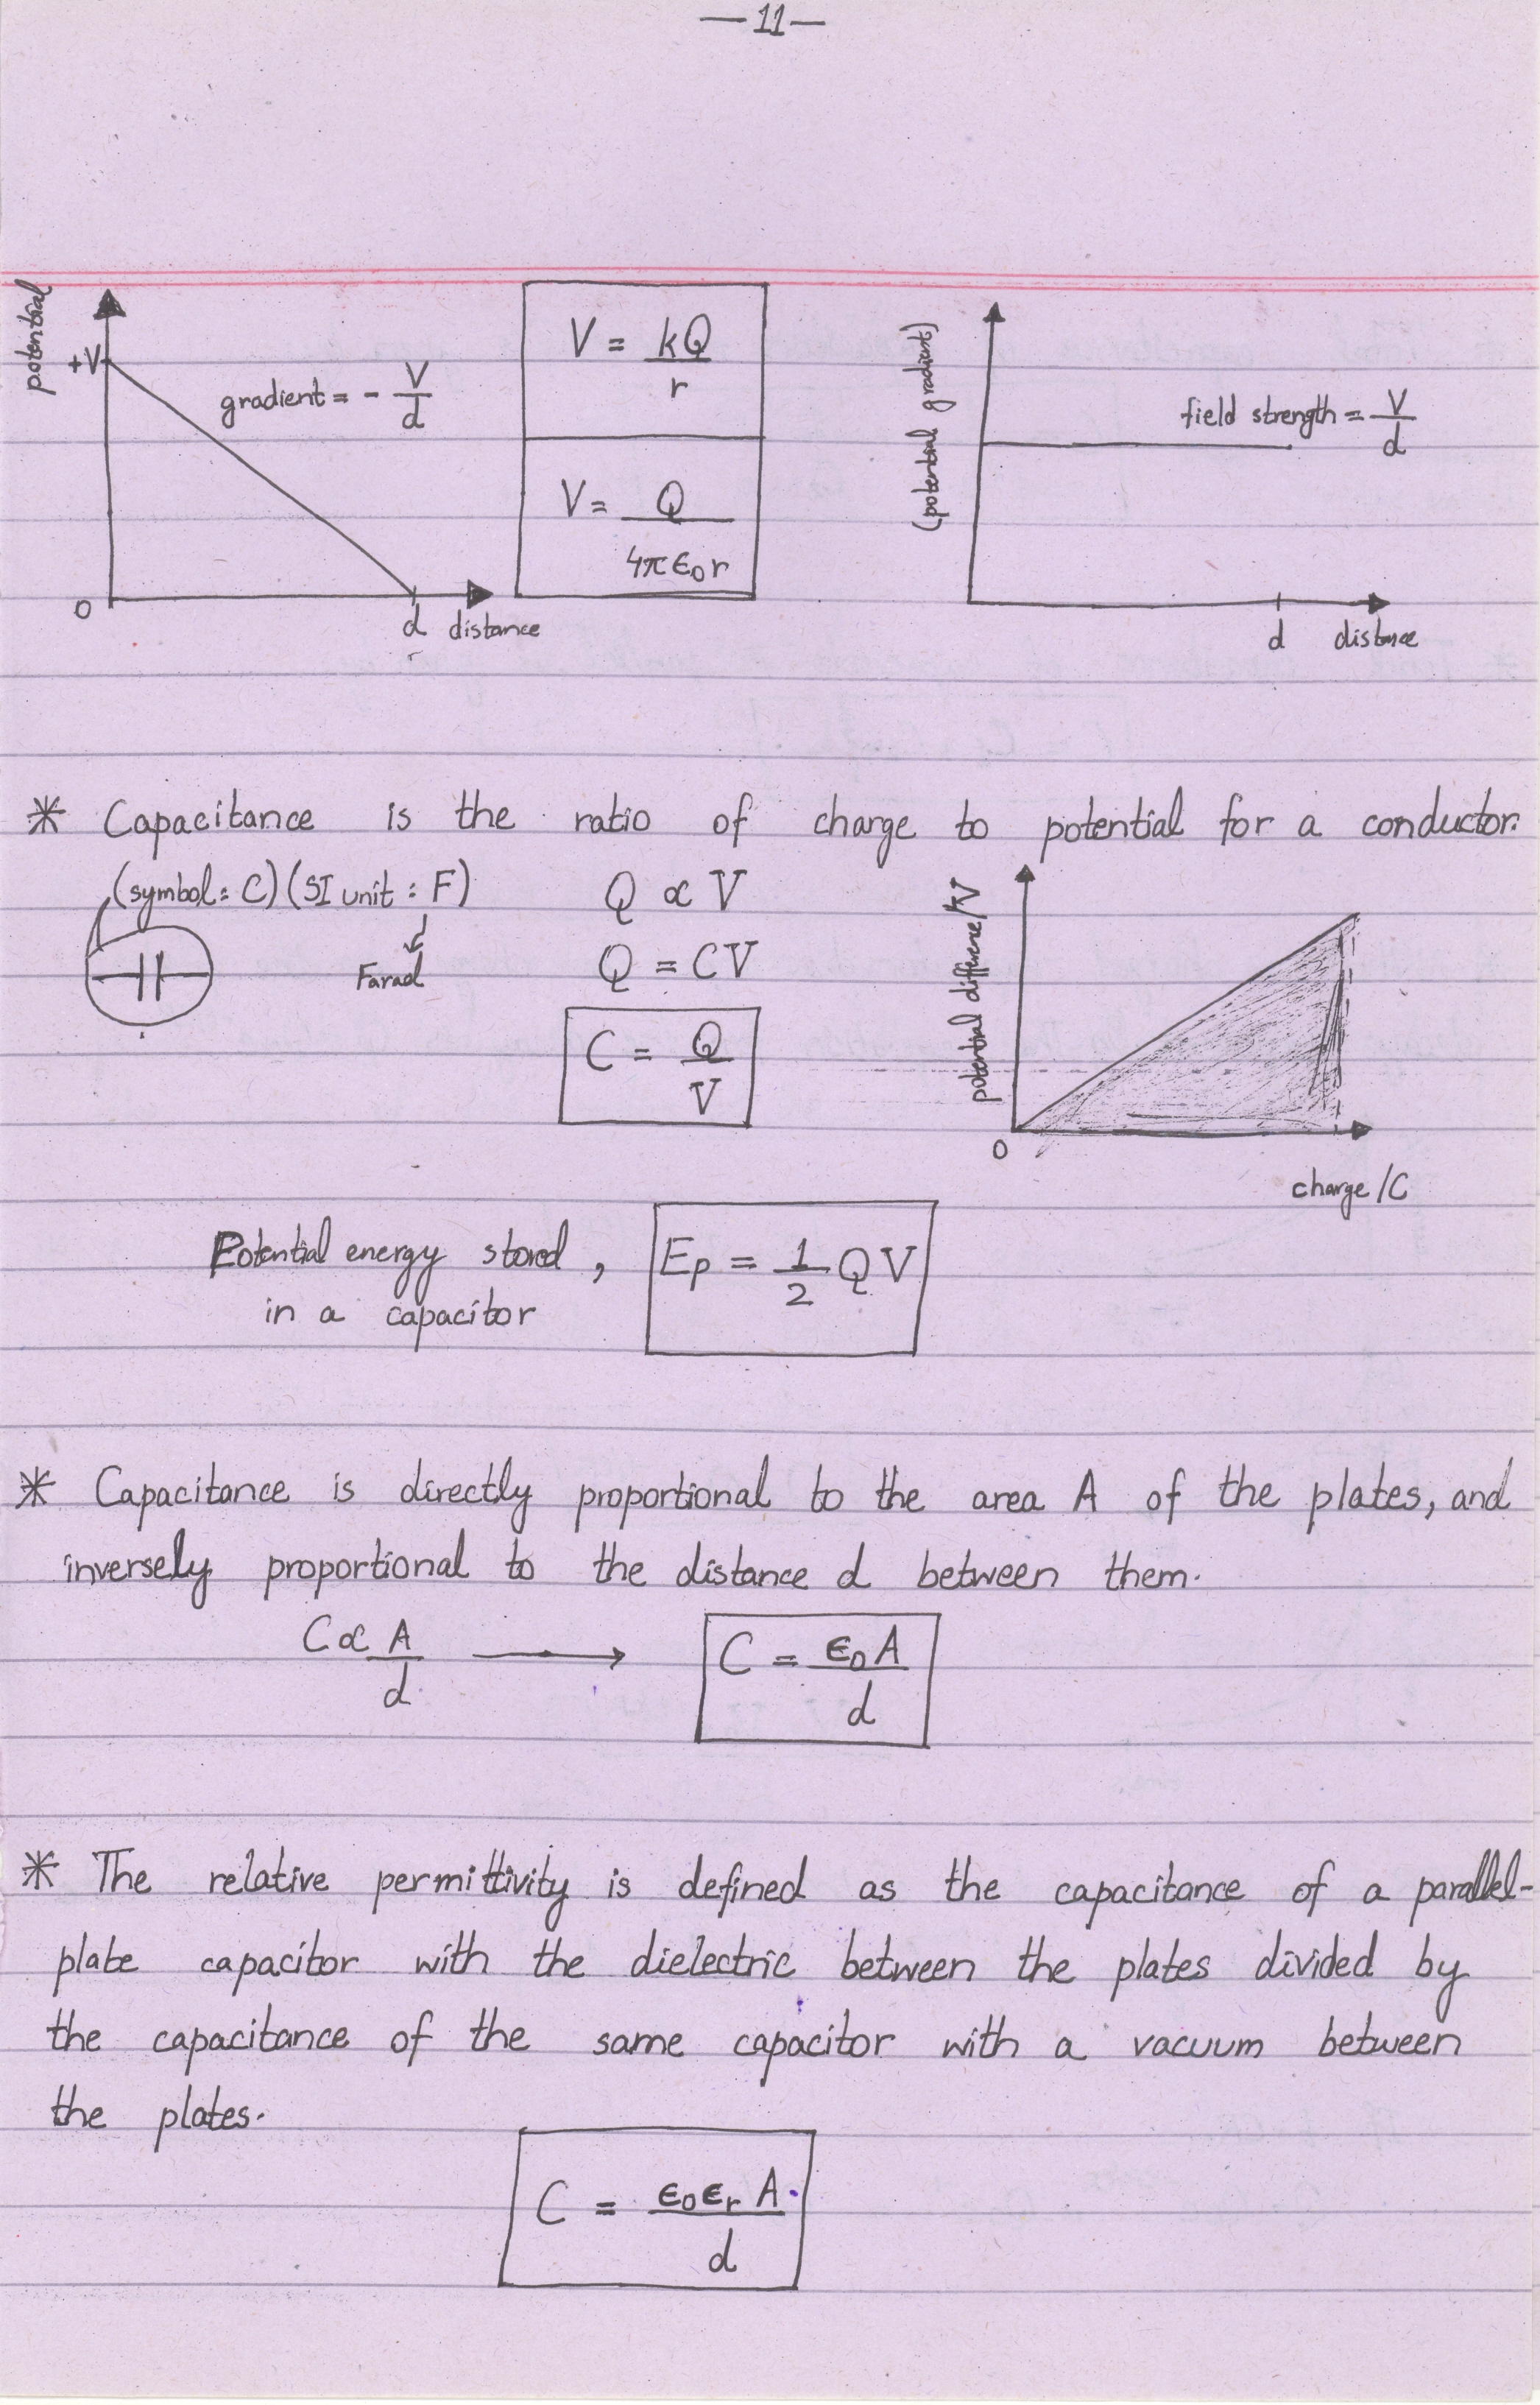 —11—
potential
+V
gradient = - V/d
0
d distance
V = kQ/r
V = Q/4πϵ₀r
(potential gradient)
field strength = V/d
d distance
* Capacitance is the ratio of charge to potential for a conductor.
(symbol: C) (SI unit : F)
Farad
Q ∝ V
Q = CV
C = Q/V
potential difference/V
0
charge/C
Potential energy stored ,
in a capacitor
Ep = 1/2 QV
* Capacitance is directly proportional to the area A of the plates, and
inversely proportional to the distance d between them.
C ∝ A/d → C = ϵ₀A/d
* The relative permittivity is defined as the capacitance of a parallel-
plate capacitor with the dielectric between the plates divided by
the capacitance of the same capacitor with a vacuum between
the plates.
C = ϵ₀ϵr A/d